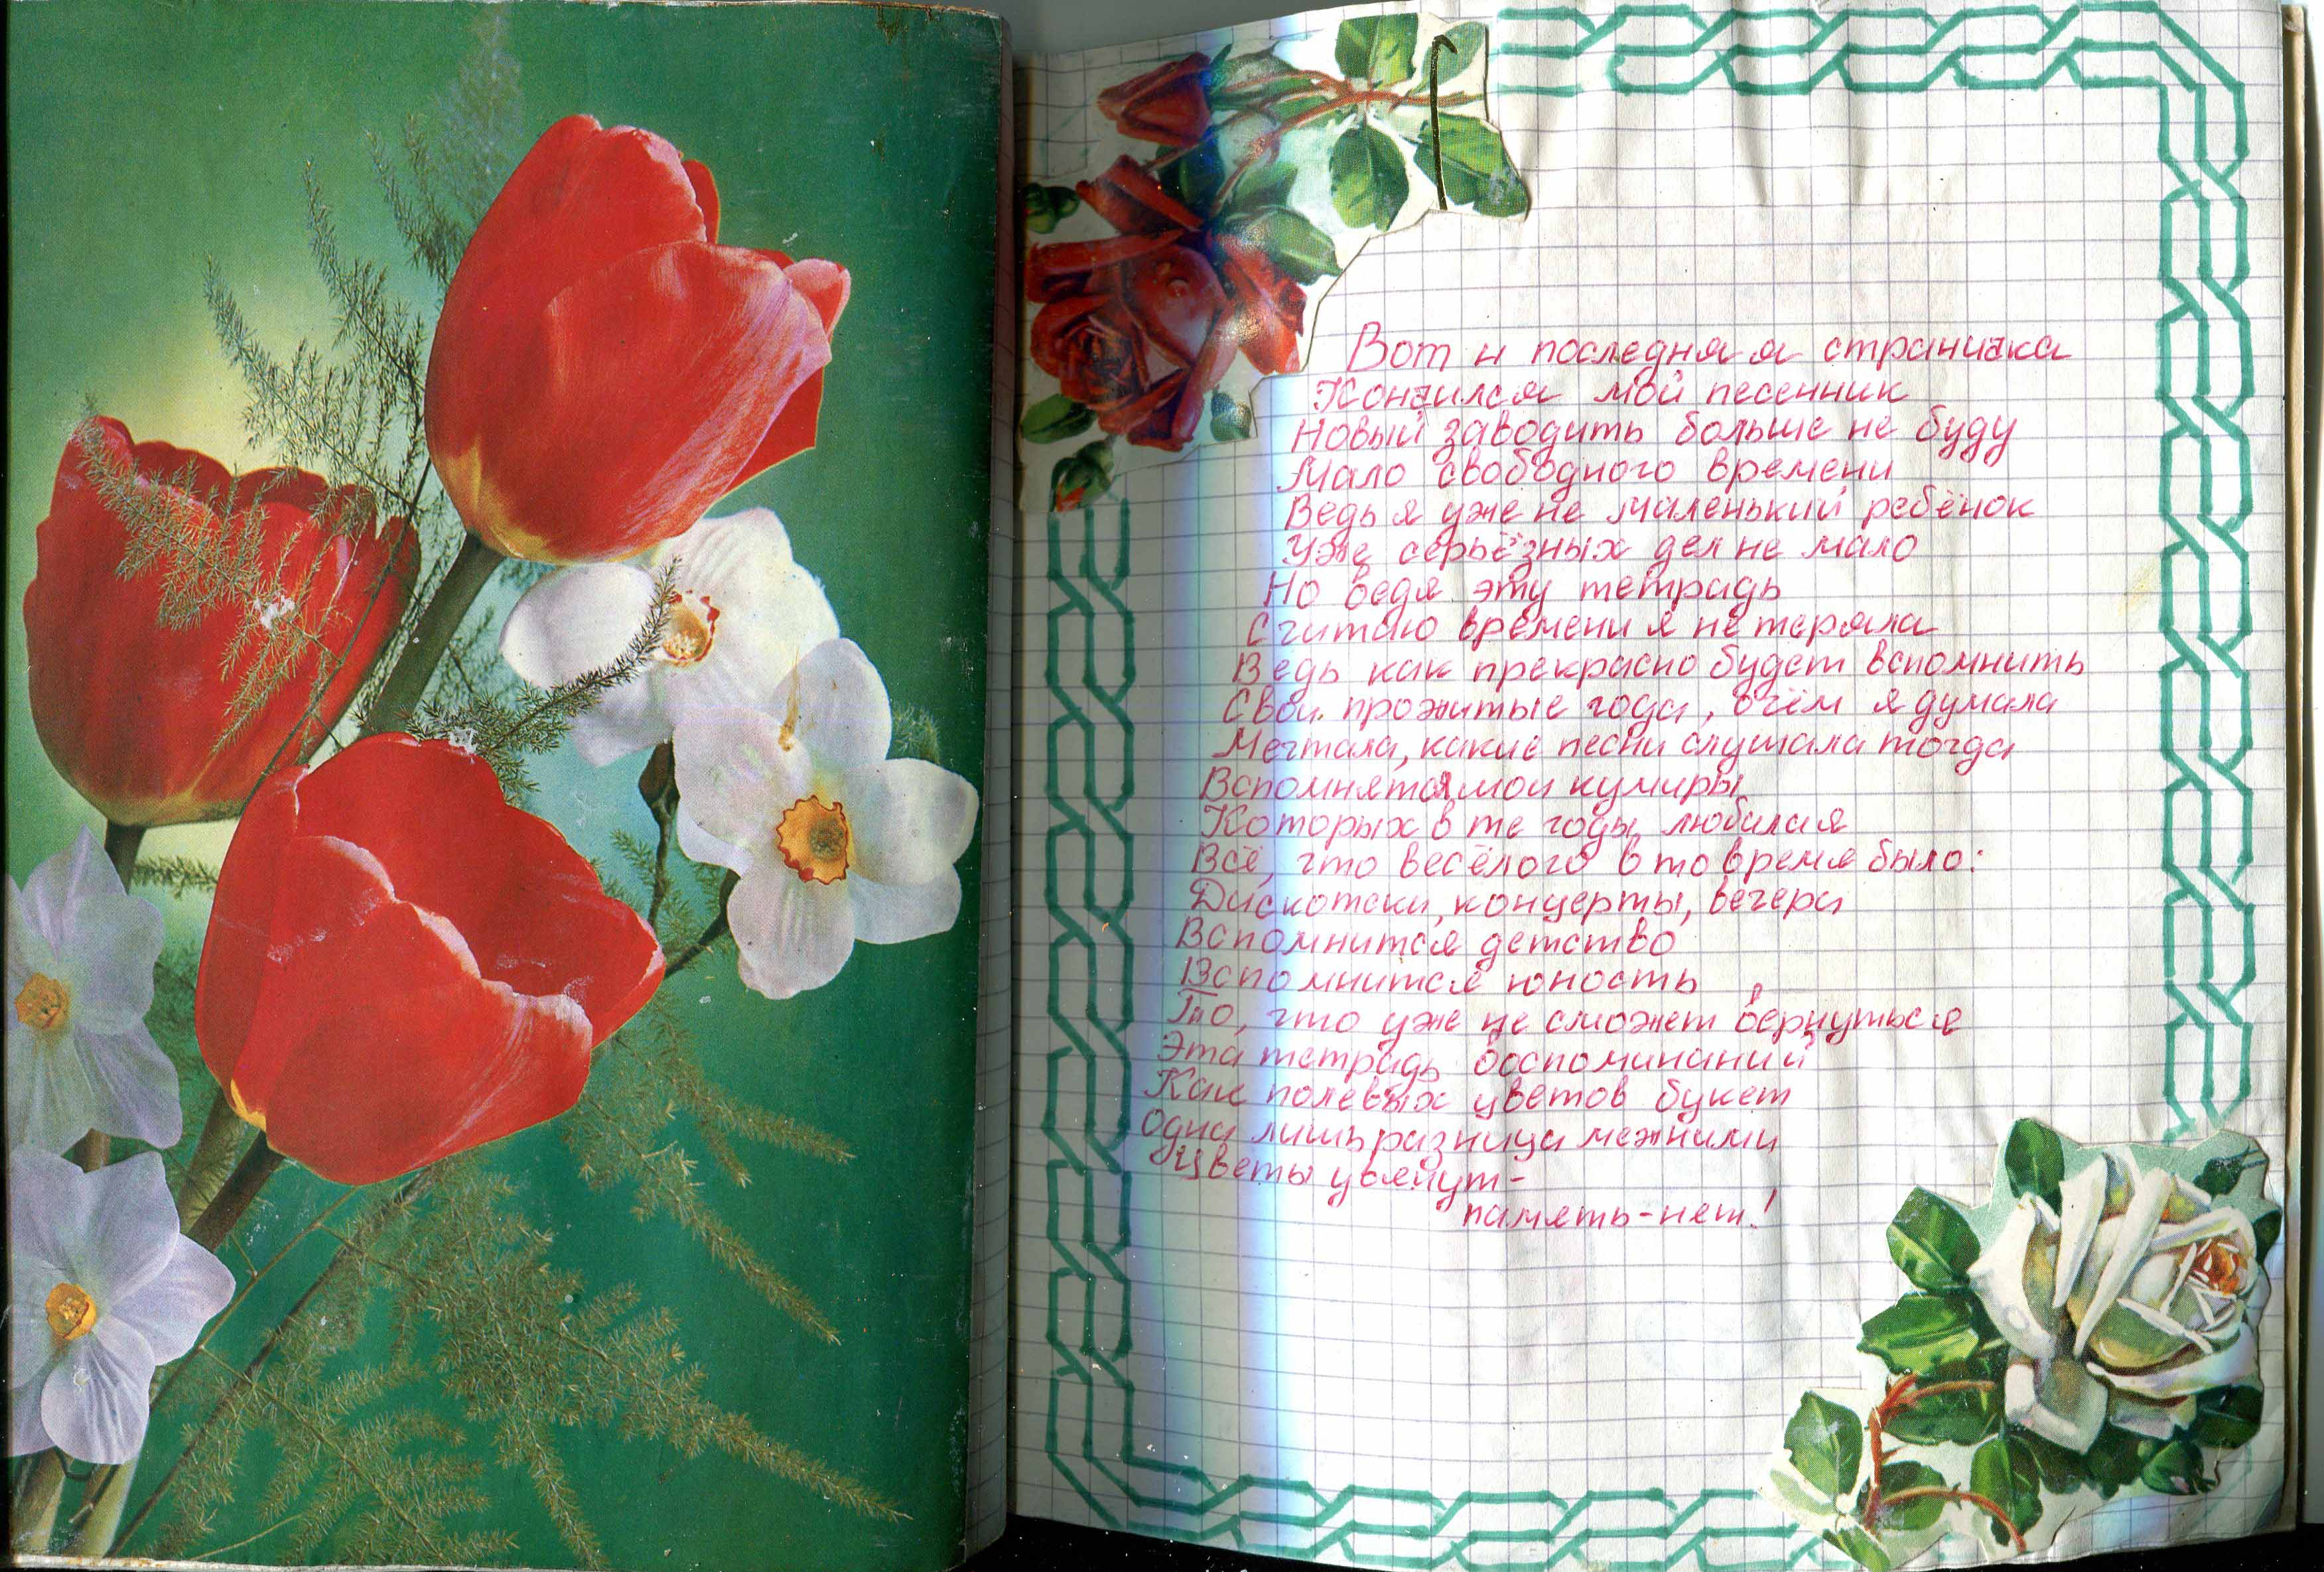 Вот и последняя страничка
Кончился мой песенник
Новый заводить больше не буду
Мало свободного времени
Ведь я уже не маленький ребёнок
Уже серьёзных дел не мало
Но ведя эту тетрадь
Считаю времени я не теряла
Ведь как прекрасно будет вспомнить
Свои прожитые года, о чём я думала
Мечтала, какие песни слушала тогда
Вспомнятся мои кумиры
Которых в те годы любила я
Всё, что весёлого в то время было:
Дискотеки, концерты, вечера
Вспомнится детство
Вспомнится юность
То, что уже не сможет вернуться
Эта тетрадь воспоминаний
Как полевых цветов букет
Одна лишь разница меж ними
Цветы увянут-
память-нет!